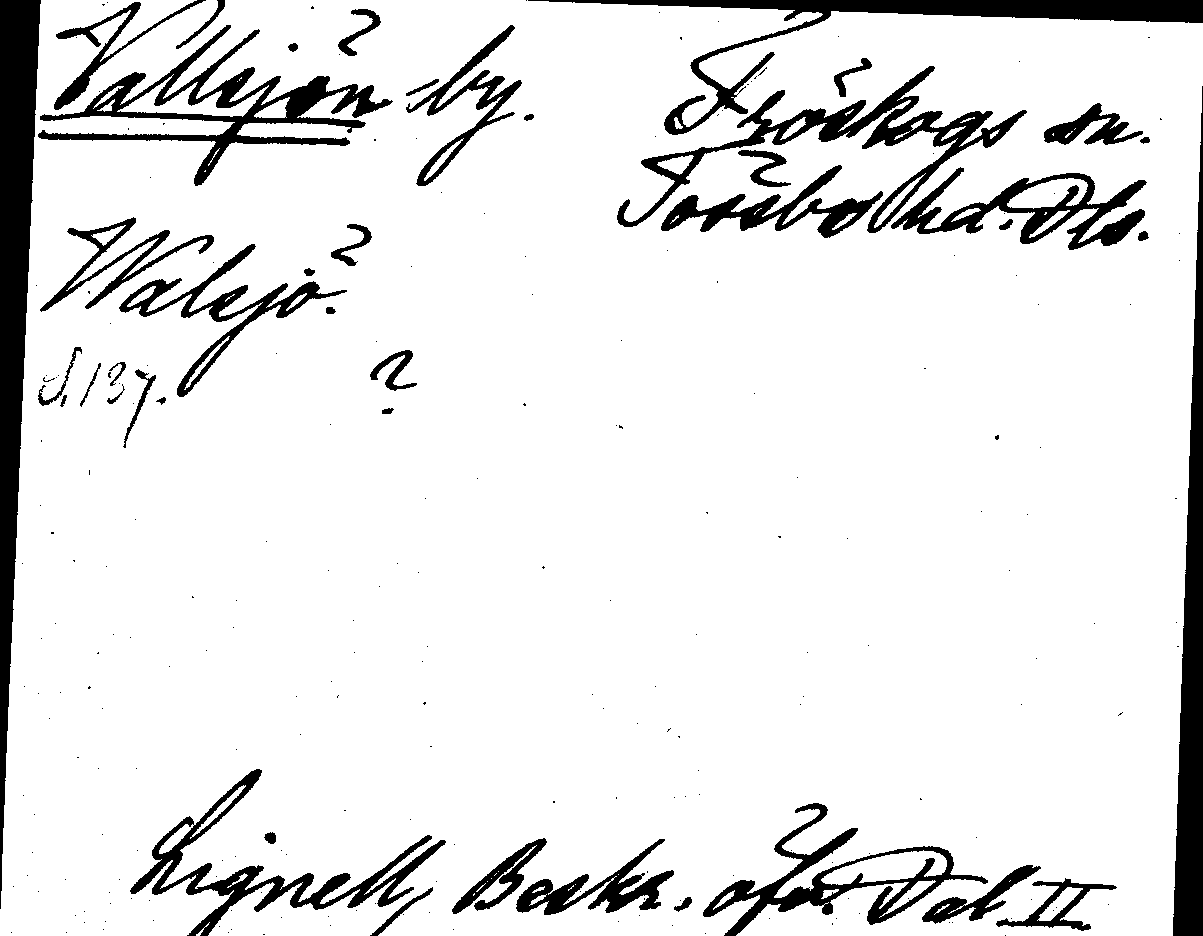 Vallsjön by. Fröskogs sn.
Tössbo hd. Dls.
Walsjö.
S. 137. ?
Lignell, Beskr. öfv. Dal II